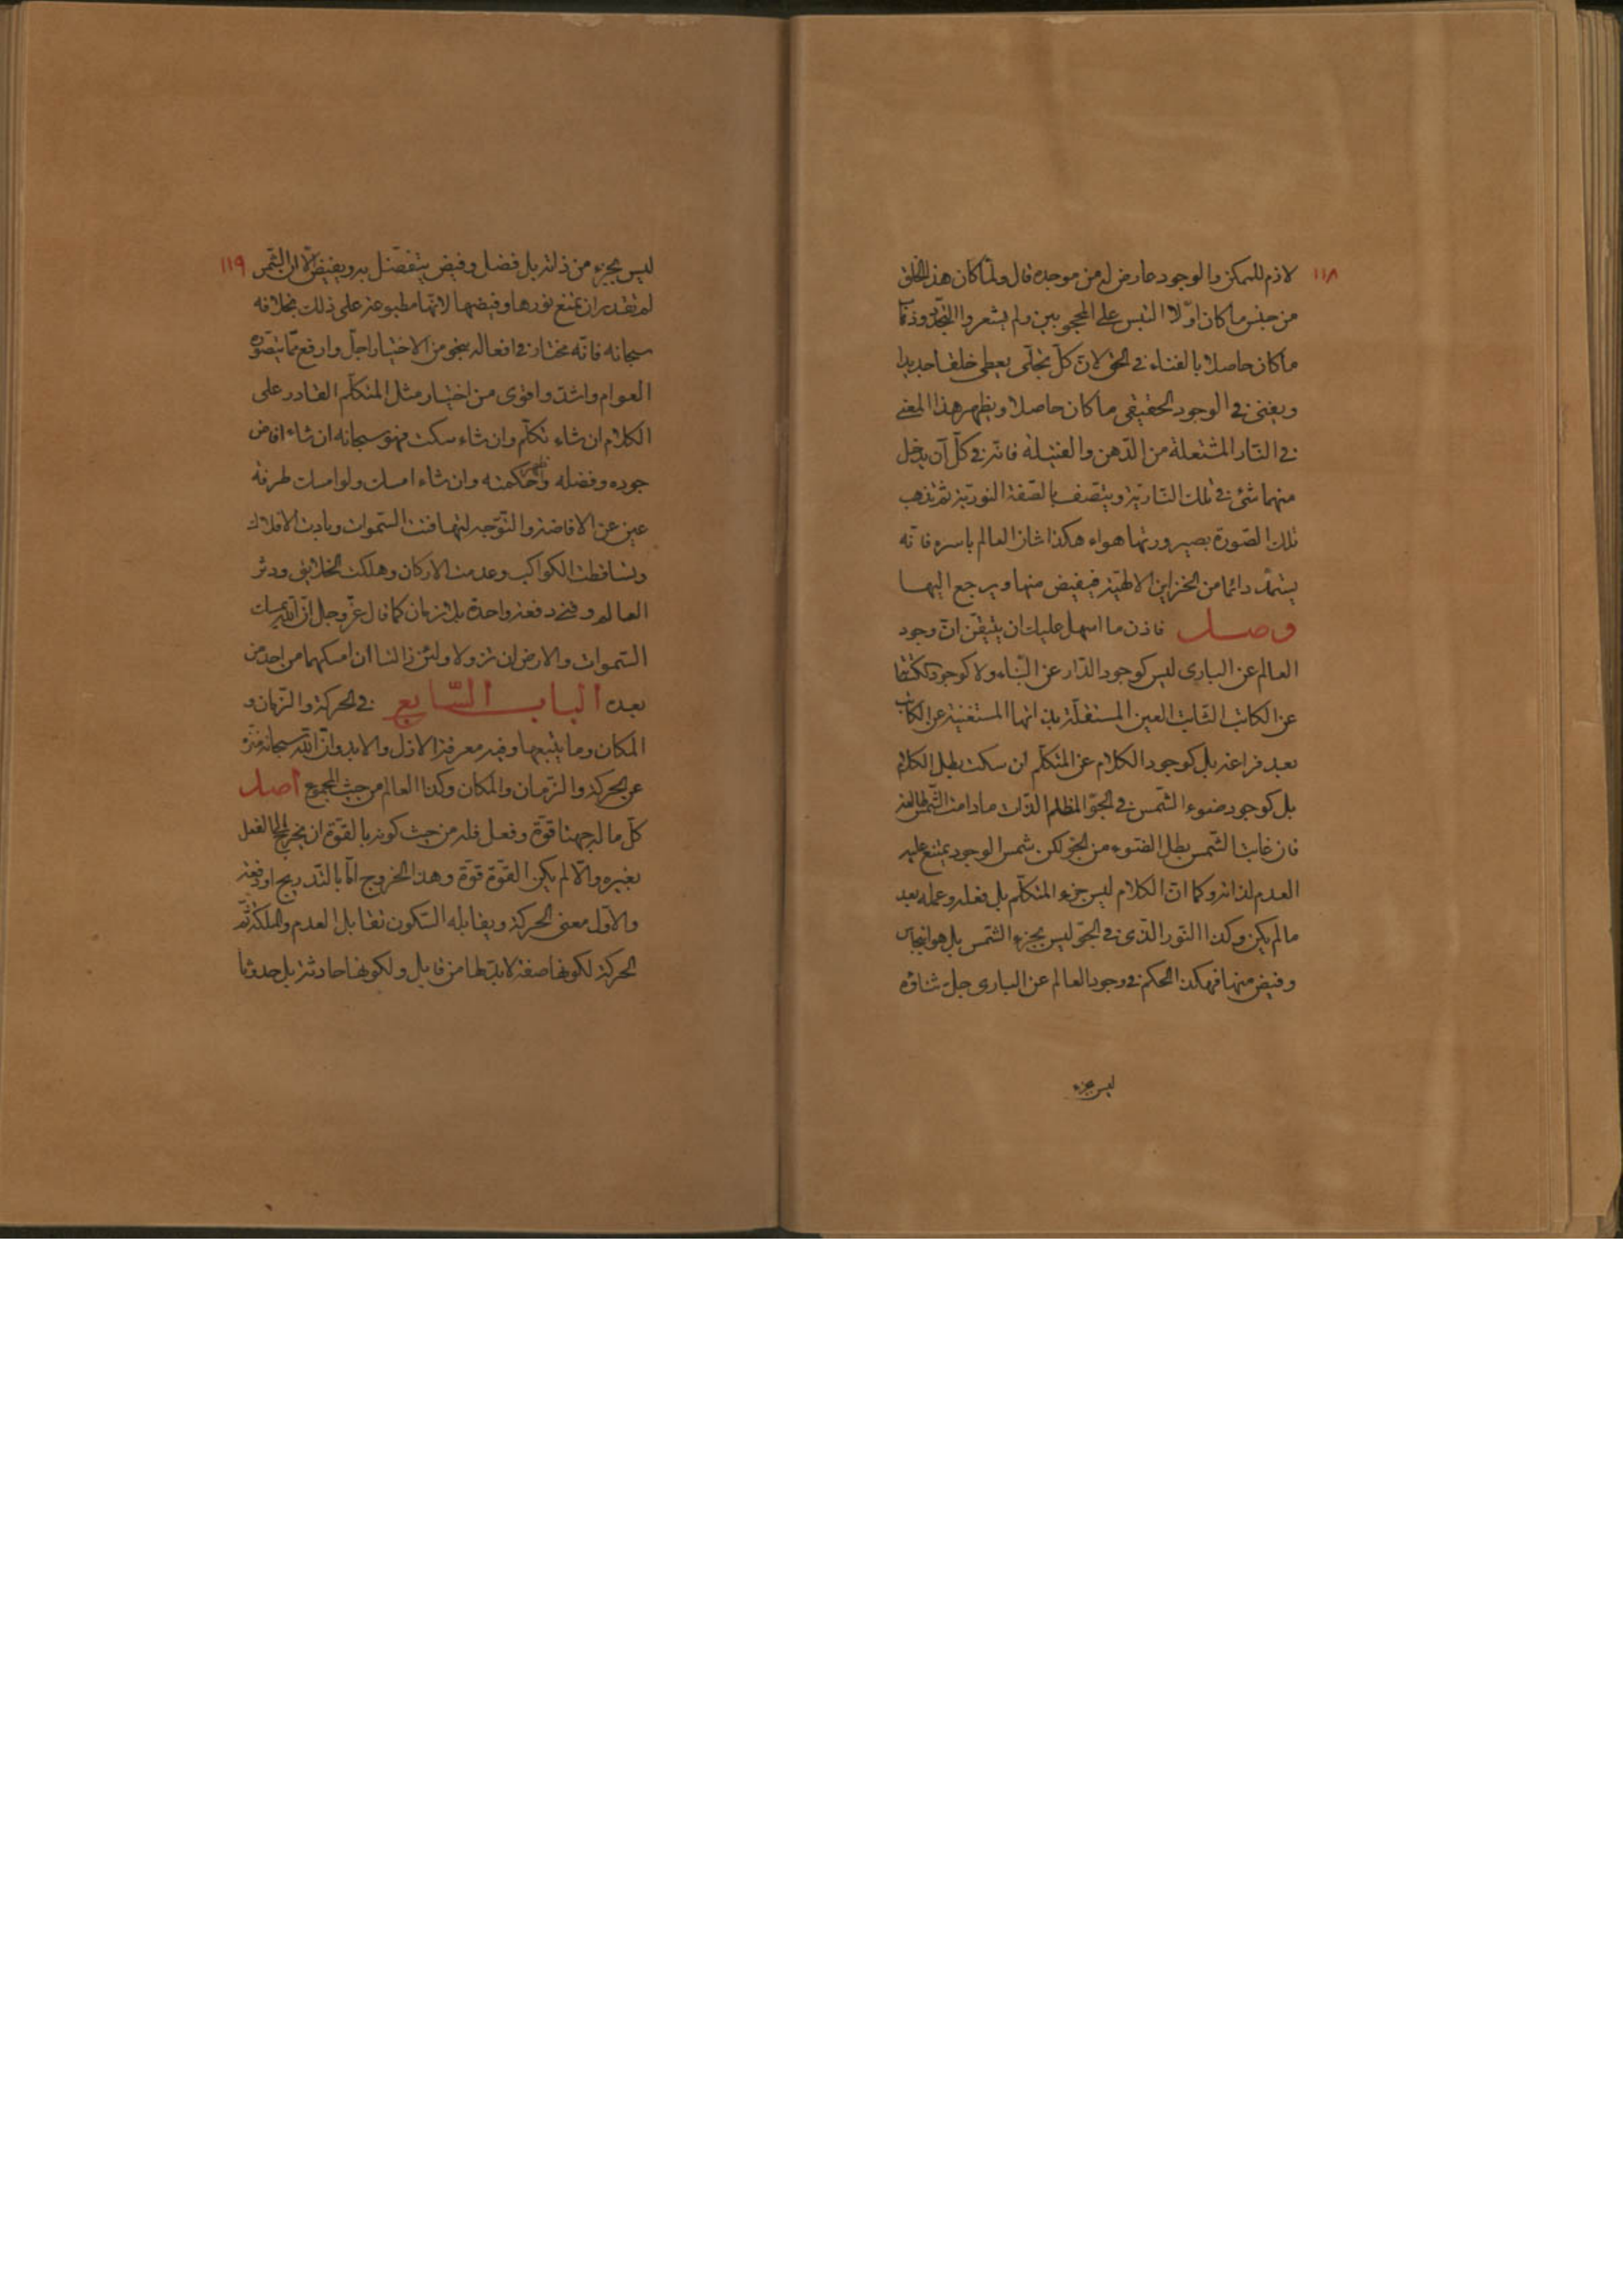 ١١٨
لازم للممكن والوجود عارض له من موجده قال ولما كان هذا الخلق
من جنس ما كان اوّلا التبس على المحجوبين ولم يشعروا التجدّد وذهاب
ما كان حاصلا بالفناء فى الحق لانّ كلّ تجلّى يعطى خلقا جديدا
ويفنى فى الوجود الحقيقى ما كان حاصلا ويظهر هذا المعنى
فى النّار المشتعلة من الدّهن والفتيلة فانّه فى كلّ آن يدخل
منهما شئ فى تلك النّاريّة ويتصف بالصّفة النوريّة ثم يذهب
تلك الصّورة بصيرورتها هواء هكذا شان العالم باسره فانّه
يستمدّ دائما من الخزاين الالهيّة فيفيض منها ويرجع اليها
وصل فاذن ما اسهل عليك ان يتيقّن انّ وجود
العالم عن البارى ليس كوجود الدّار عن البنّاء ولا كوجود الكتابة
عن الكاتب الثابت العين المستقلّة بذاتها المستغنية عن الكاتب
بعد فراغه بل كوجود الكلام عن المتكلّم ان سكت بطل الكلام
بل كوجود ضوء الشّمس فى الجوّ المظلم الذّات مادامت الشّمس طالعة
فان غابت الشّمس بطل الضّوء من الجوّ لكن شمس الوجود يمتنع عليه
العدم لذاته وكما انّ الكلام ليس جزء المتكلّم بل فعله وعمله بعد
ما لم يكن وكذا النّور الّذى فى الجوّ ليس بجزء الشّمس بل هو انبجاس
وفيض منها فهكذا الحكم فى وجود العالم عن البارى جلّ ثناؤه
ليس بجزء
١١٩
ليس بجزء من ذاته بل فضل وفيض يتفضّل به ويفيض الّا ان الشّمس
لم تقدر ان تمنع نورها وفيضها لانّها مطبوعة على ذلك بخلافه
سبحانه فانّه مختار فى افعاله بنحو من الاختيار اجلّ وارفع ممّا يتصوّره
العوام واشدّ واقوى من اختيار مثل المتكلّم القادر على
الكلام ان شاء تكلّم وان شاء سكت فهو سبحانه ان شاء افاض
جوده وفضله واظهر حكمته وان شاء امسك ولو امسك طرفة
عين عن الافاضة والتّوجه لتهافتت السّموات وبادت الافلاك
وتساقطت الكواكب وعدمت الاركان وهلكت الخلايق ودثر
العالم وفنى دفعة واحدة بلا زمان كما قال عزّ وجل انّ الله يمسك
السّموات والارض ان تزولا ولئن زالتا ان امسكهما من احد من
بعده الباب السّابع فى الحركة والزّمان و
المكان وما يتبعها وفيه معرفة الازل والابد وانّ الله سبحانه منزّه
عن الحركة والزّمان والمكان وكذا العالم من حيث المجموع اصل
كلّ ما له جهتا قوّة وفعل فله من حيث كونه بالقوّة ان يخرج الى الفعل
بغيره والّا لم يكن القوّة قوّة وهذا الخروج امّا بالتّدريج او دفعة
والاوّل معنى الحركة ويقابله السّكون تقابل العدم والملكة ثمّ
الحركة لكونها صفة لابدّ لها من قابل ولكونها حادثة بل حدوثا